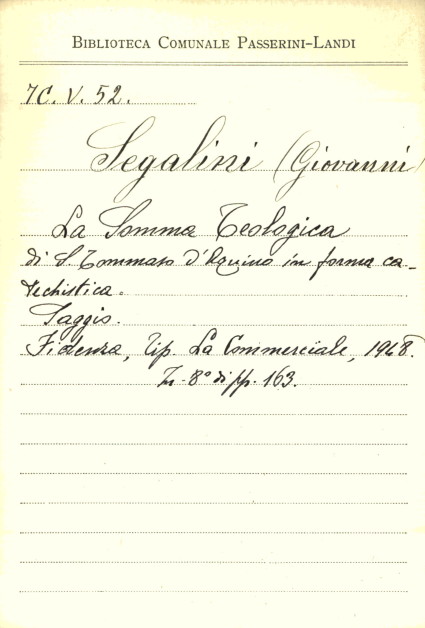 BIBLIOTECA COMUNALE PASSERINI-LANDI
7C. V. 52.
Segalini (Giovanni)
La Somma Teologica
di S. Tommaso d'Aquino in forma ca-
techistica.
Saggio.
Fidenza, Tip. La Commerciale, 1948.
In-8° di pp. 163.